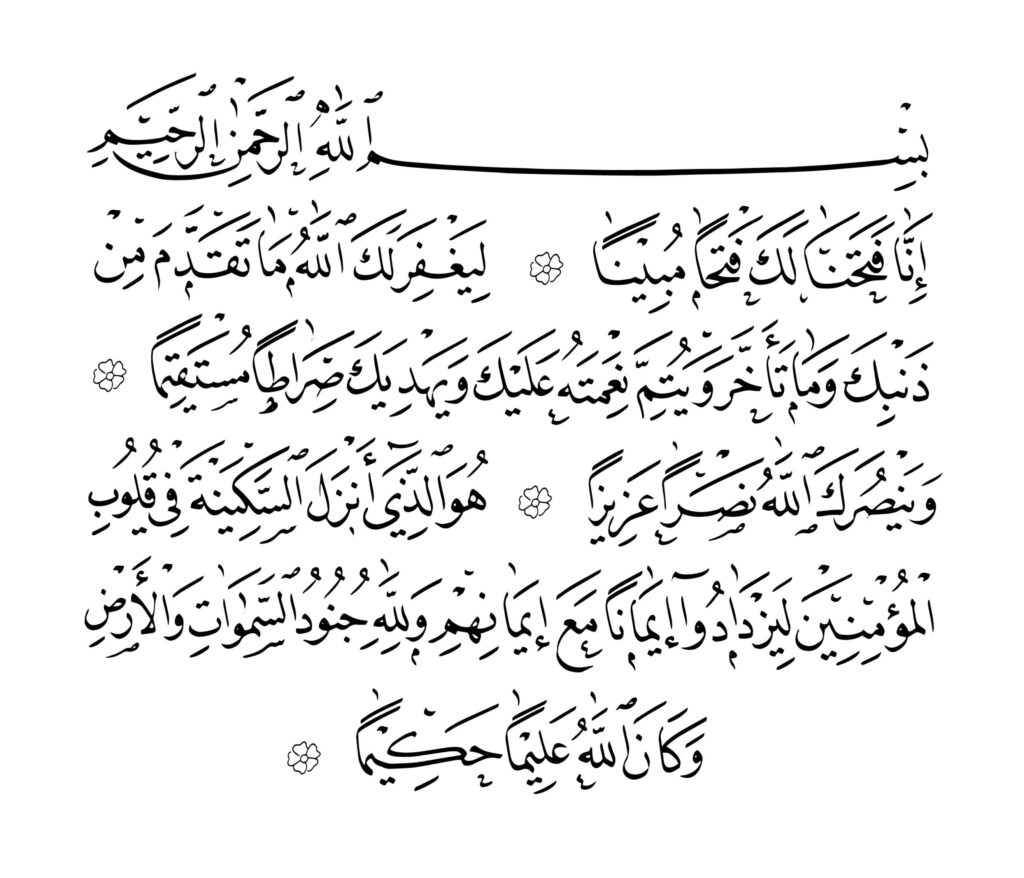 بِسْمِ ٱللَّهِ ٱلرَّحْمَٰنِ ٱلرَّحِيمِ
إِنَّا فَتَحْنَا لَكَ فَتْحًا مُبِينًا لِيَغْفِرَ لَكَ ٱللَّهُ مَا تَقَدَّمَ مِنْ
ذَنْبِكَ وَمَا تَأَخَّرَ وَيُتِمَّ نِعْمَتَهُ عَلَيْكَ وَيَهْدِيَكَ صِرَاطًا مُسْتَقِيمًا
وَيَنْصُرَكَ ٱللَّهُ نَصْرًا عَزِيزًا هُوَ ٱلَّذِي أَنْزَلَ ٱلسَّكِينَةَ فِي قُلُوبِ
الْمُؤْمِنِينَ لِيَزْدَادُوٓا إِيمَانًا مَعَ إِيمَانِهِمْ وَلِلَّهِ جُنُودُ ٱلسَّمَٰوَاتِ وَالْأَرْضِ
وَكَانَ ٱللَّهُ عَلِيمًا حَكِيمًا